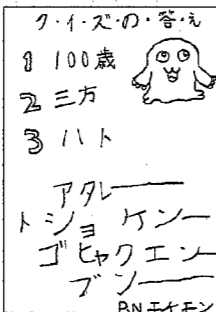 ク・イ・ズ・の・答・え
1 100歳
2 三方
3 ハト
アタレ——
トショケン—
ゴヒャクエン—
ブン——
P.N モイモン